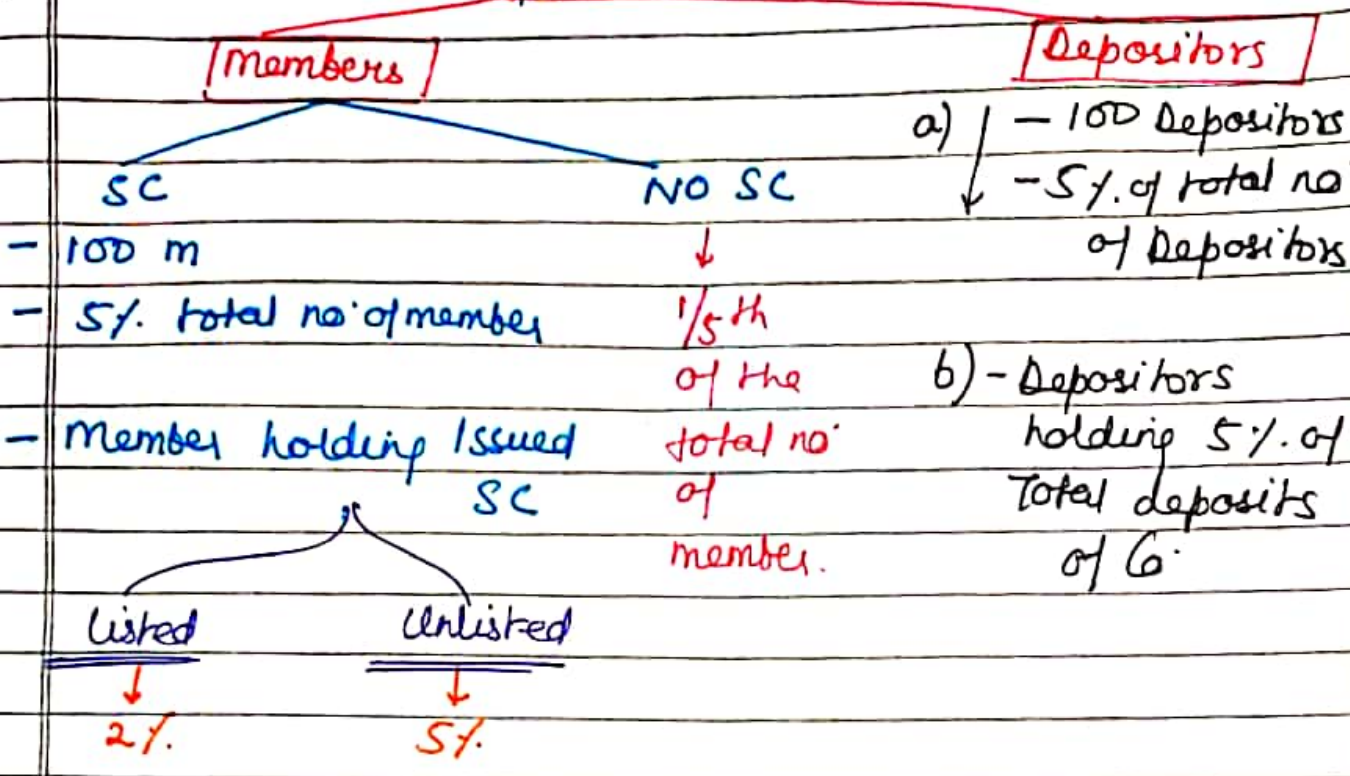 Members
SC
- 100 m
- 5% total no. of member
- Member holding Issued
SC
Listed
2%
Unlisted
5%
NO SC
1/5 th
of the
total no.
of
member.
Depositors
a) - 100 Depositors
- 5% of total no
of Depositors
b) - Depositors
holding 5% of
Total deposits
of Co.